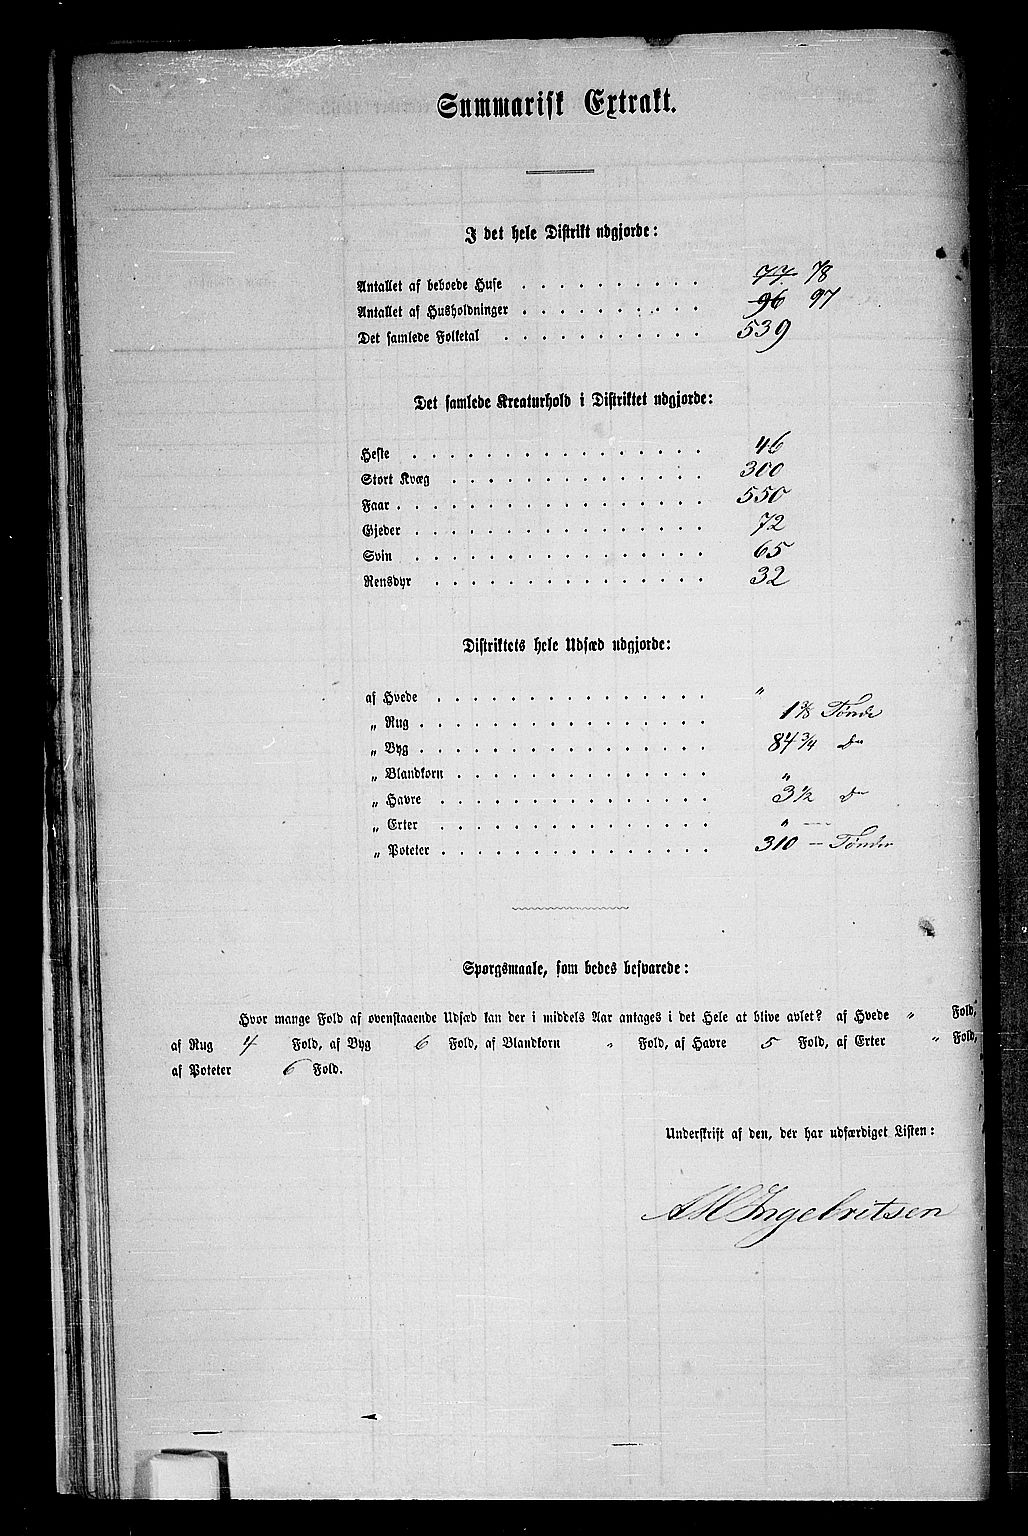 Summarisk Extrakt.
I det hele Distrikt udgjorde:
Antallet af beboede Huse . . . . . . . . . . 77. 78
Antallet af Husholdninger . . . . . . . . . . 96 97
Det samlede Folketal . . . . . . . . . . . 539
Det samlede Kreaturhold i Distriktet udgjorde:
Heste . . . . . . . . . . . . . . . . 46
Stort Kvæg . . . . . . . . . . . . . . 300
Faar . . . . . . . . . . . . . . . . . 550
Gjeder . . . . . . . . . . . . . . . . 72
Svin . . . . . . . . . . . . . . . . 65
Rensdyr . . . . . . . . . . . . . . . 32
Distriktets hele Udsæd udgjorde:
af Hvede . . . . . . . . . . . . . . . "
„ Rug . . . . . . . . . . . . . . . . 1 3/8 Tønde
„ Byg . . . . . . . . . . . . . . . . 84 3/4 Do
„ Blandkorn . . . . . . . . . . . . . . "
„ Havre . . . . . . . . . . . . . . . 3 1/2 Do
„ Erter . . . . . . . . . . . . . . . " —
„ Poteter . . . . . . . . . . . . . . . 310 — Tønder
Sporgsmaale, som bedes besvarede:
Hvor mange Fold af ovenstaaende Udsæd kan der i middels Aar antages i det Hele at blive avlet? af Hvede " Fold,
af Rug 4 Fold, af Byg 6 Fold, af Blandkorn " Fold, af Havre 5 Fold, af Erter " Fold,
af Poteter 6 Fold.
Underskrift af den, der har udfærdiget Listen:
AHIngebritsen